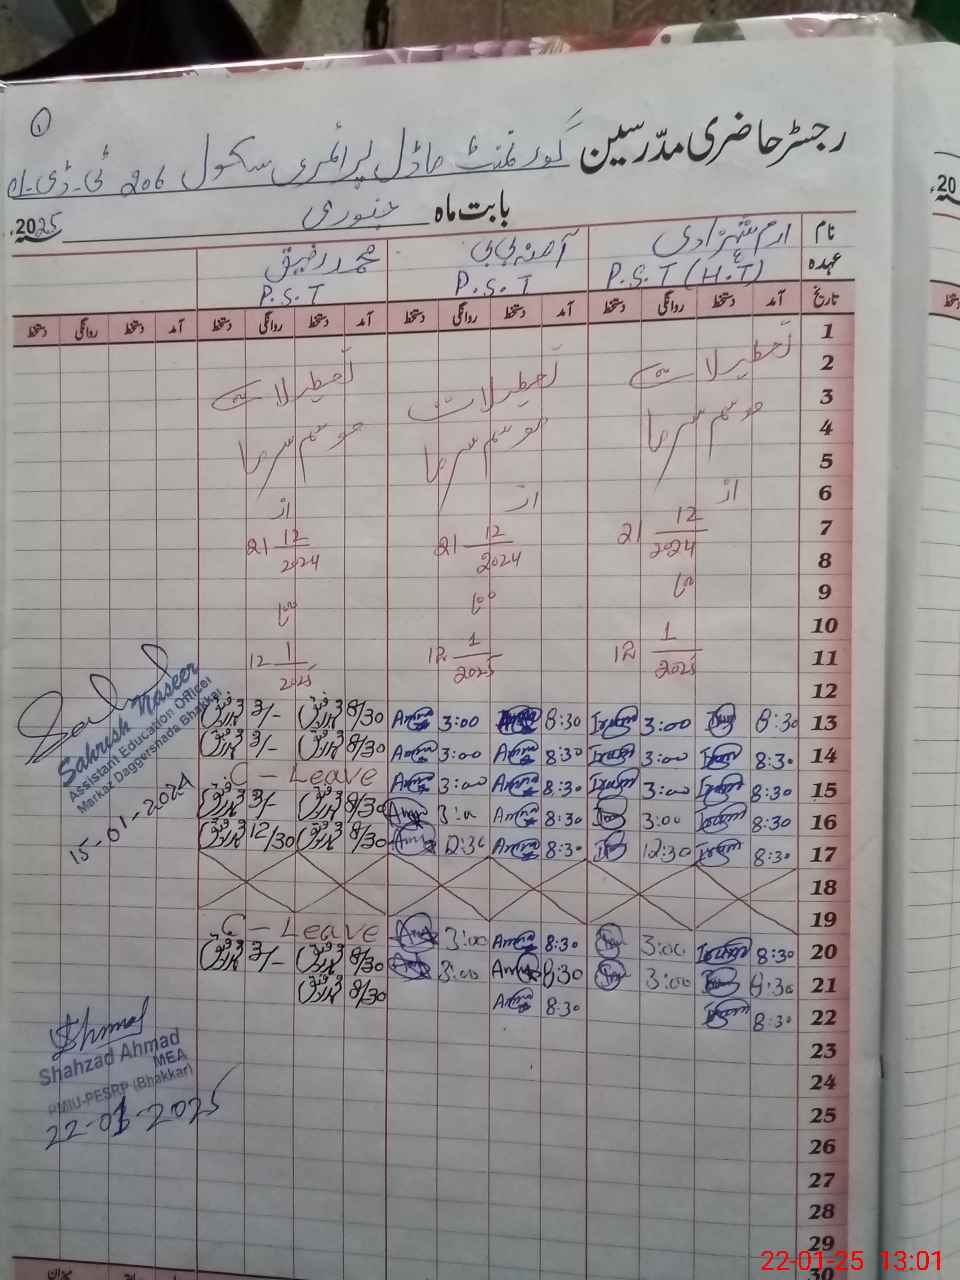 ①
رجسٹر حاضری مدّرسین گورنمنٹ ماڈل پرائمری سکول 206 ٹی۔ڈی۔اے
بابت ماہ جنوری 2025ء
نام ارم شہزادی آمنہ بی بی محمد رفیق
عہدہ P.S.T (H.T) P.S.T P.S.T
تاریخ آمد دستخط روانگی دستخط آمد دستخط روانگی دستخط آمد دستخط روانگی دستخط آمد دستخط روانگی دستخط
1
2 تعطیلات تعطیلات تعطیلات
3
4 موسم سرما موسم سرما موسم سرما
5
6 از از از
7 21 12/2024 21 12/2024 21 12/2024
8
9 تا تا تا
10
11 12 1/2025 12 1/2025 12 1/2025
12
13 8:30 Irum 3:00 Irum 8:30 Amna 3:00 Amna 8/30 محمد رفیق 3/- محمد رفیق
14 8:30 Irum 3:00 Irum 8:30 Amna 3:00 Amna 8/30 محمد رفیق 3/- محمد رفیق
15 8:30 Irum 3:00 Irum 8:30 Amna 3:00 Amna C - Leave
16 8:30 Irum 3:00 Irum 8:30 Amna 3:00 Amna 8/30 محمد رفیق 3/- محمد رفیق
17 8:30 Irum 12:30 Irum 8:30 Amna 12:30 Amna 8/30 محمد رفیق 12/30 محمد رفیق
18
19
20 8:30 Irum 3:00 Irum 8:30 Amna 3:00 Amna C - Leave
21 8:30 Irum 3:00 Irum 8:30 Amna 3:00 Amna 8/30 محمد رفیق 3/- محمد رفیق
22 8:30 Irum 8:30 Amna 8/30 محمد رفیق
23
24
25
26
27
28
29
30
Sahresh Naseer
Assistant Education Officer
Markaz Daggershada Bhakkar
15-01-2024
Shahzad Ahmad
MEA
PMIU-PESRP (Bhakkar)
22-01-2025
20
22-01-25 13:01